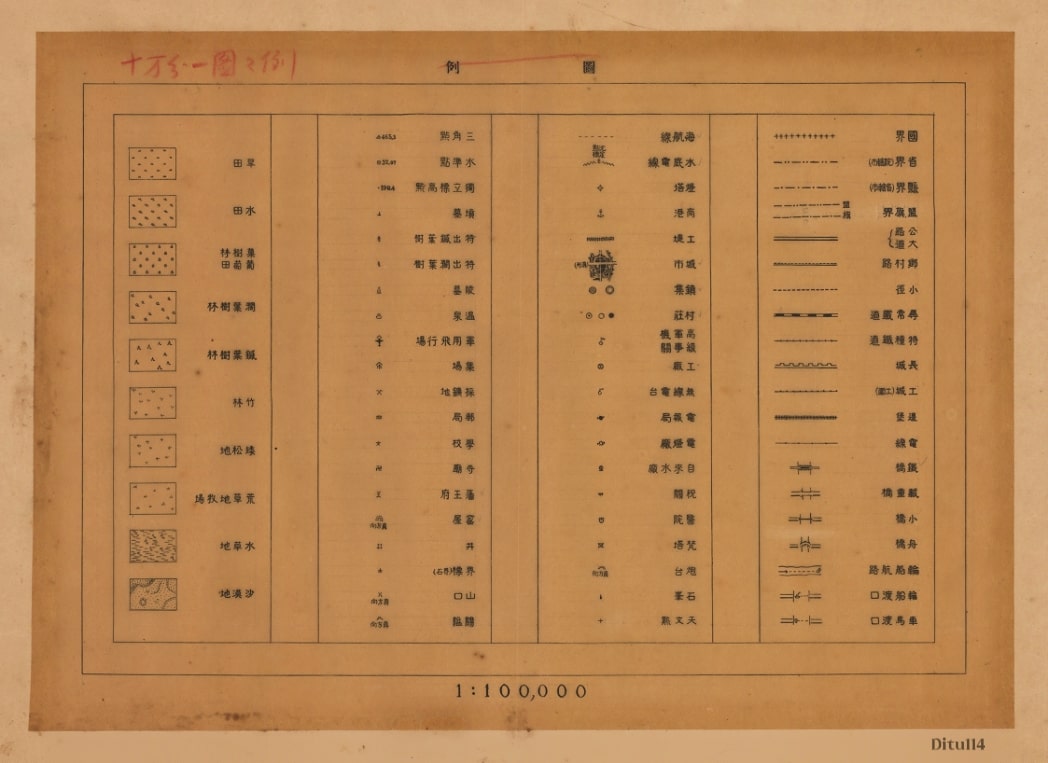 十万分一圖之例
圖例
國界
省界(院轄市)
縣界(省轄市)
盟旗界
盟
旗
公路
大道
鄉村路
小徑
尋常鐵道
特種鐵道
長城
邊堡
電線
鐵橋
載重橋
小橋
舟橋
輪船航路
輪船渡口
車馬渡口
海航線
水底電線
燈塔
商港
工堤
城市
鎮集
村莊
高軍機
級事關
工廠
無線電台
電報局
電燈廠
自來水廠
稅關
醫院
梵塔
炮台
天文點
三角點
水準點
獨立標高點
墳墓
特出鍼葉樹
特出濶葉樹
陵墓
溫泉
軍用飛行場
集場
採鑛地
郵局
學校
寺廟
藩王府
窰屋
井
界標(界石)
山口
關隘
旱田
水田
菓樹林
葡萄田
濶葉樹林
鍼葉樹林
竹林
矮松地
荒草地牧場
水草地
沙漠地
1:100,000
Ditu114